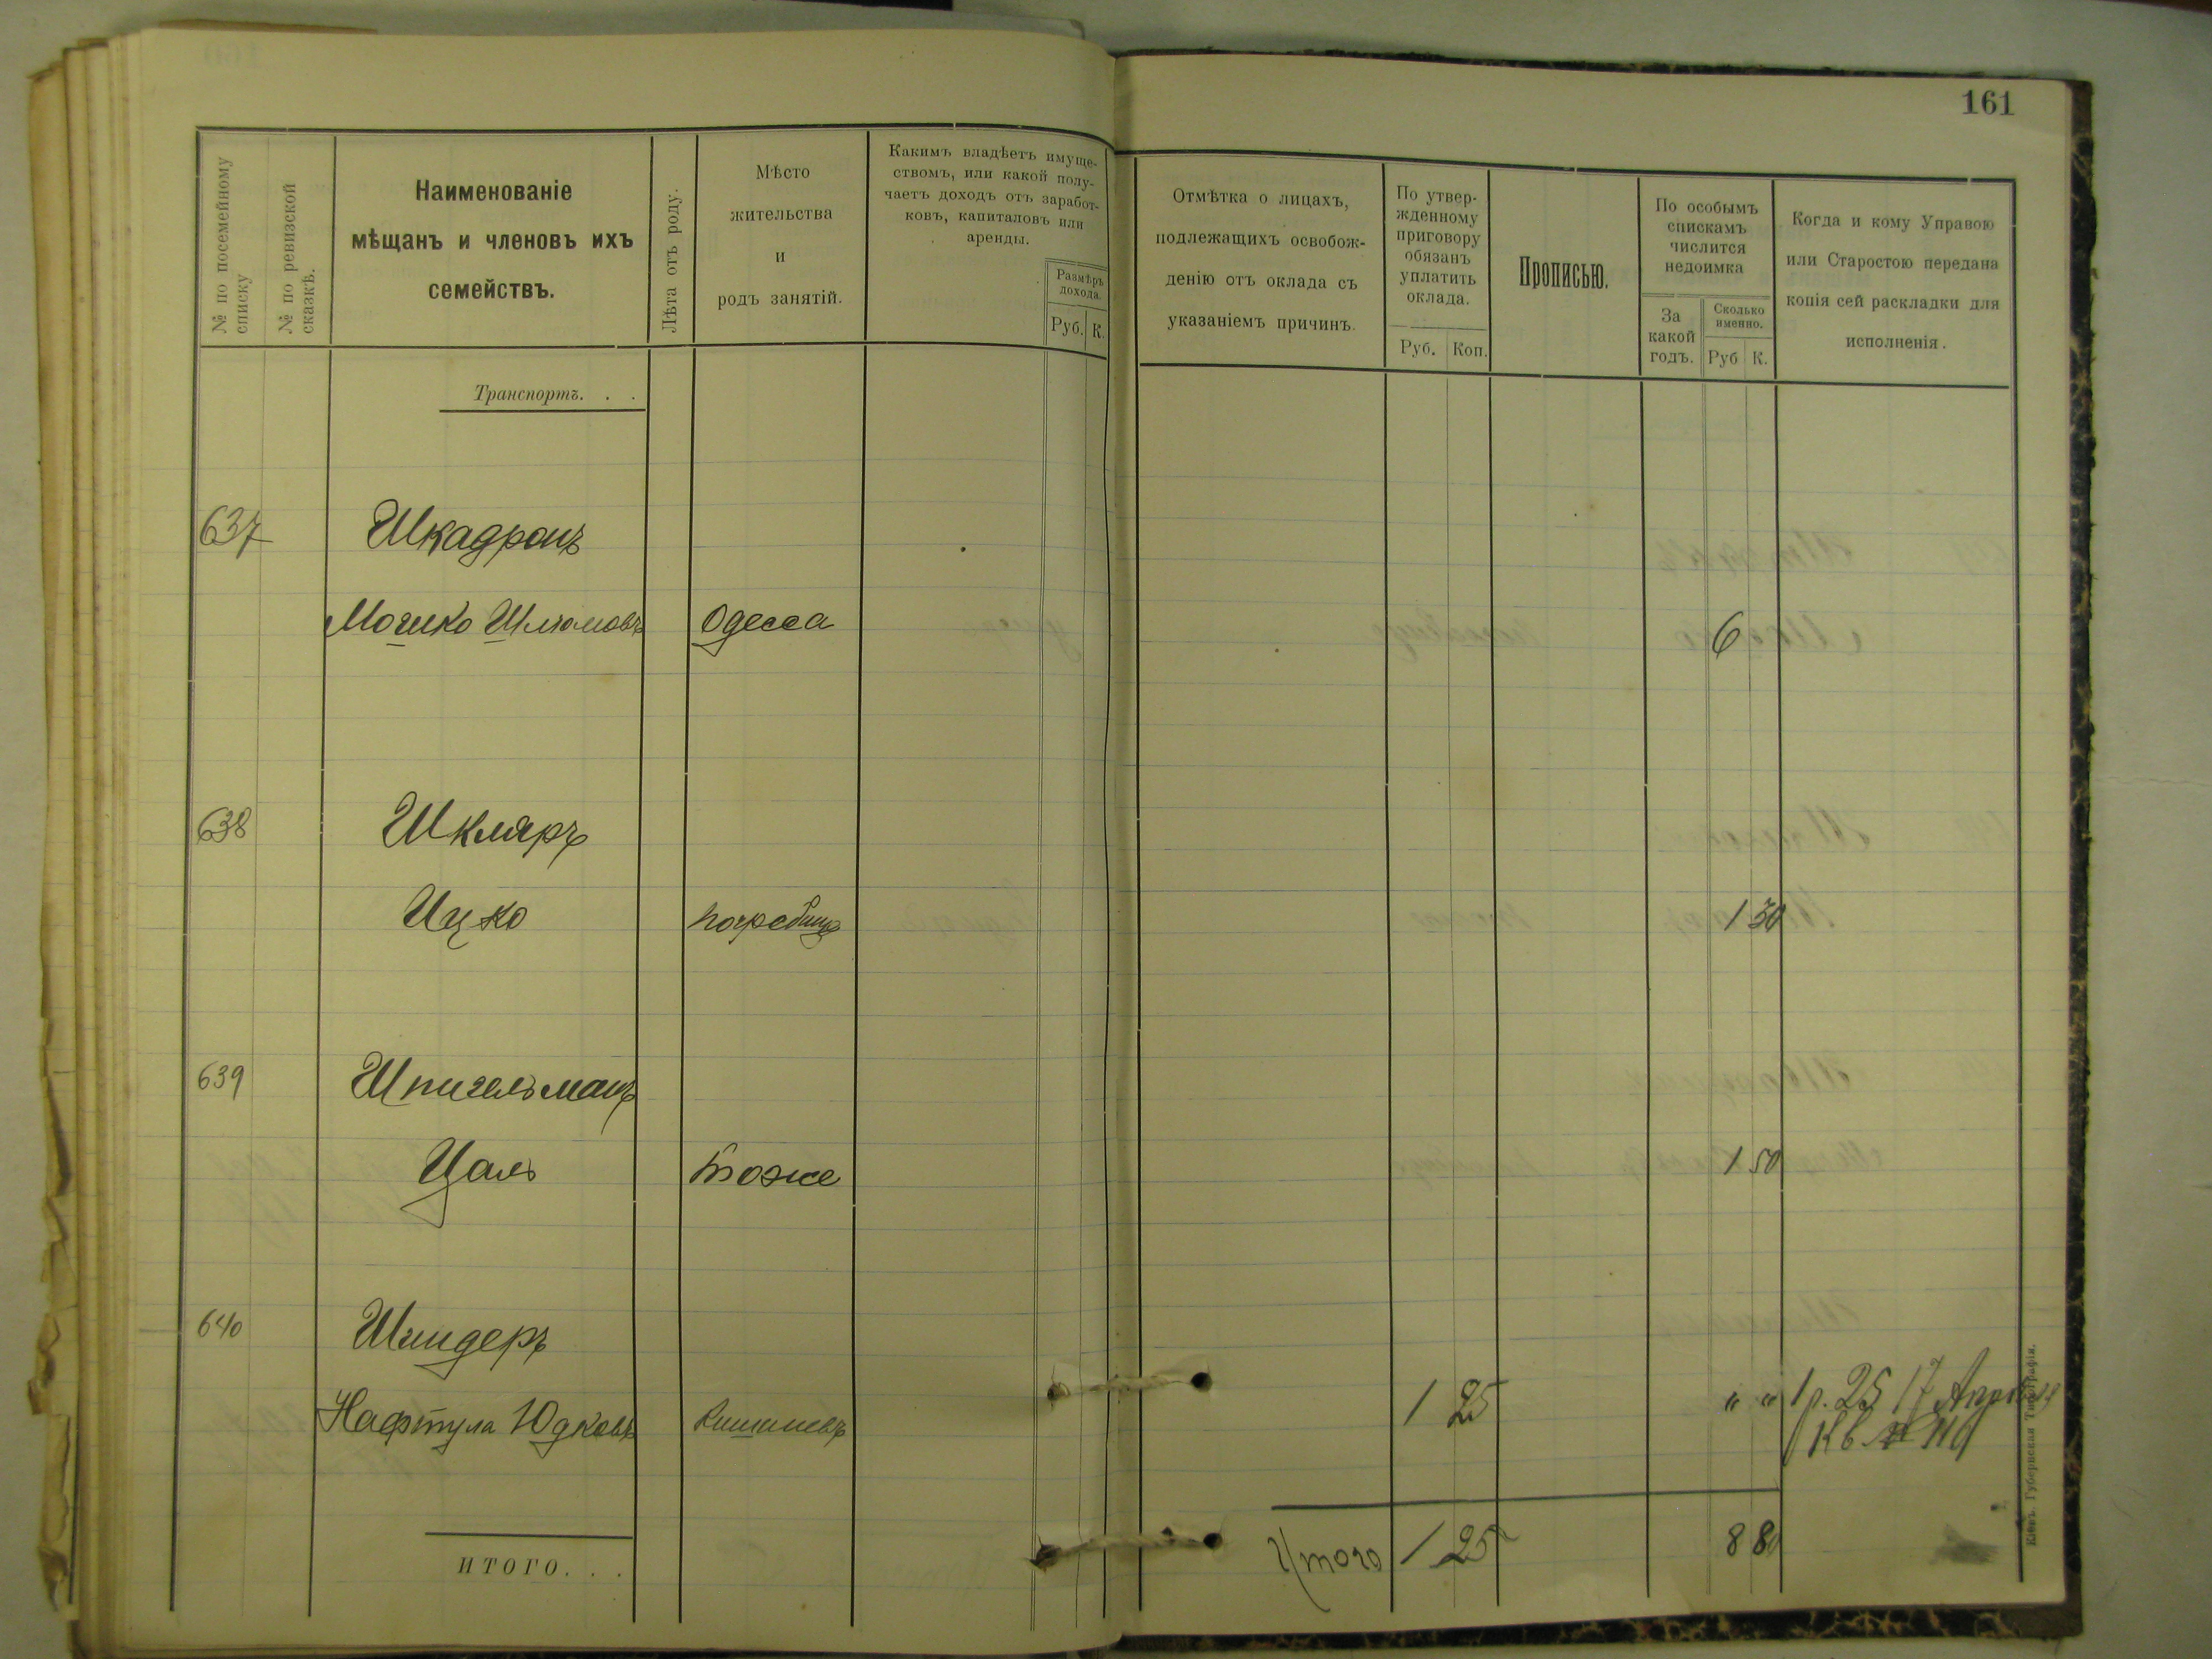 161
№ по посемейному списку
№ по ревизской сказкѣ.
Наименованіе
мѣщанъ и членовъ ихъ
семействъ.
Лѣта отъ роду.
Мѣсто
жительства
и
родъ занятій.
Какимъ владѣетъ имуще-
ствомъ, или какой полу-
чаетъ доходъ отъ заработ-
ковъ, капиталовъ или
аренды.
Размѣръ
дохода.
Руб. К.
Отмѣтка о лицахъ,
подлежащихъ освобож-
денію отъ оклада съ
указаніемъ причинъ.
По утвер-
жденному
приговору
обязанъ
уплатить
оклада.
Руб. Коп.
Прописью.
По особымъ
спискамъ
числится
недоимка
За
какой
годъ.
Сколько
именно.
Руб К.
Когда и кому Управою
или Старостою передана
копія сей раскладки для
исполненія.
Транспортъ. . .
637 Шкадронъ
Мошко Шлиомовъ Одесса 6
638 Шкляръ
Ицко погребище 1 30
639 Шпигельманъ
Цаль тоже 1 50
640 Шиндеръ
Нафтула Юдковъ Кишиневъ 1 25 " " 1 р. 25 17 Апрѣля
Кв. №
ИТОГО. . .
Итого 1 25 8 80
Кіевъ. Губернская Типографія.